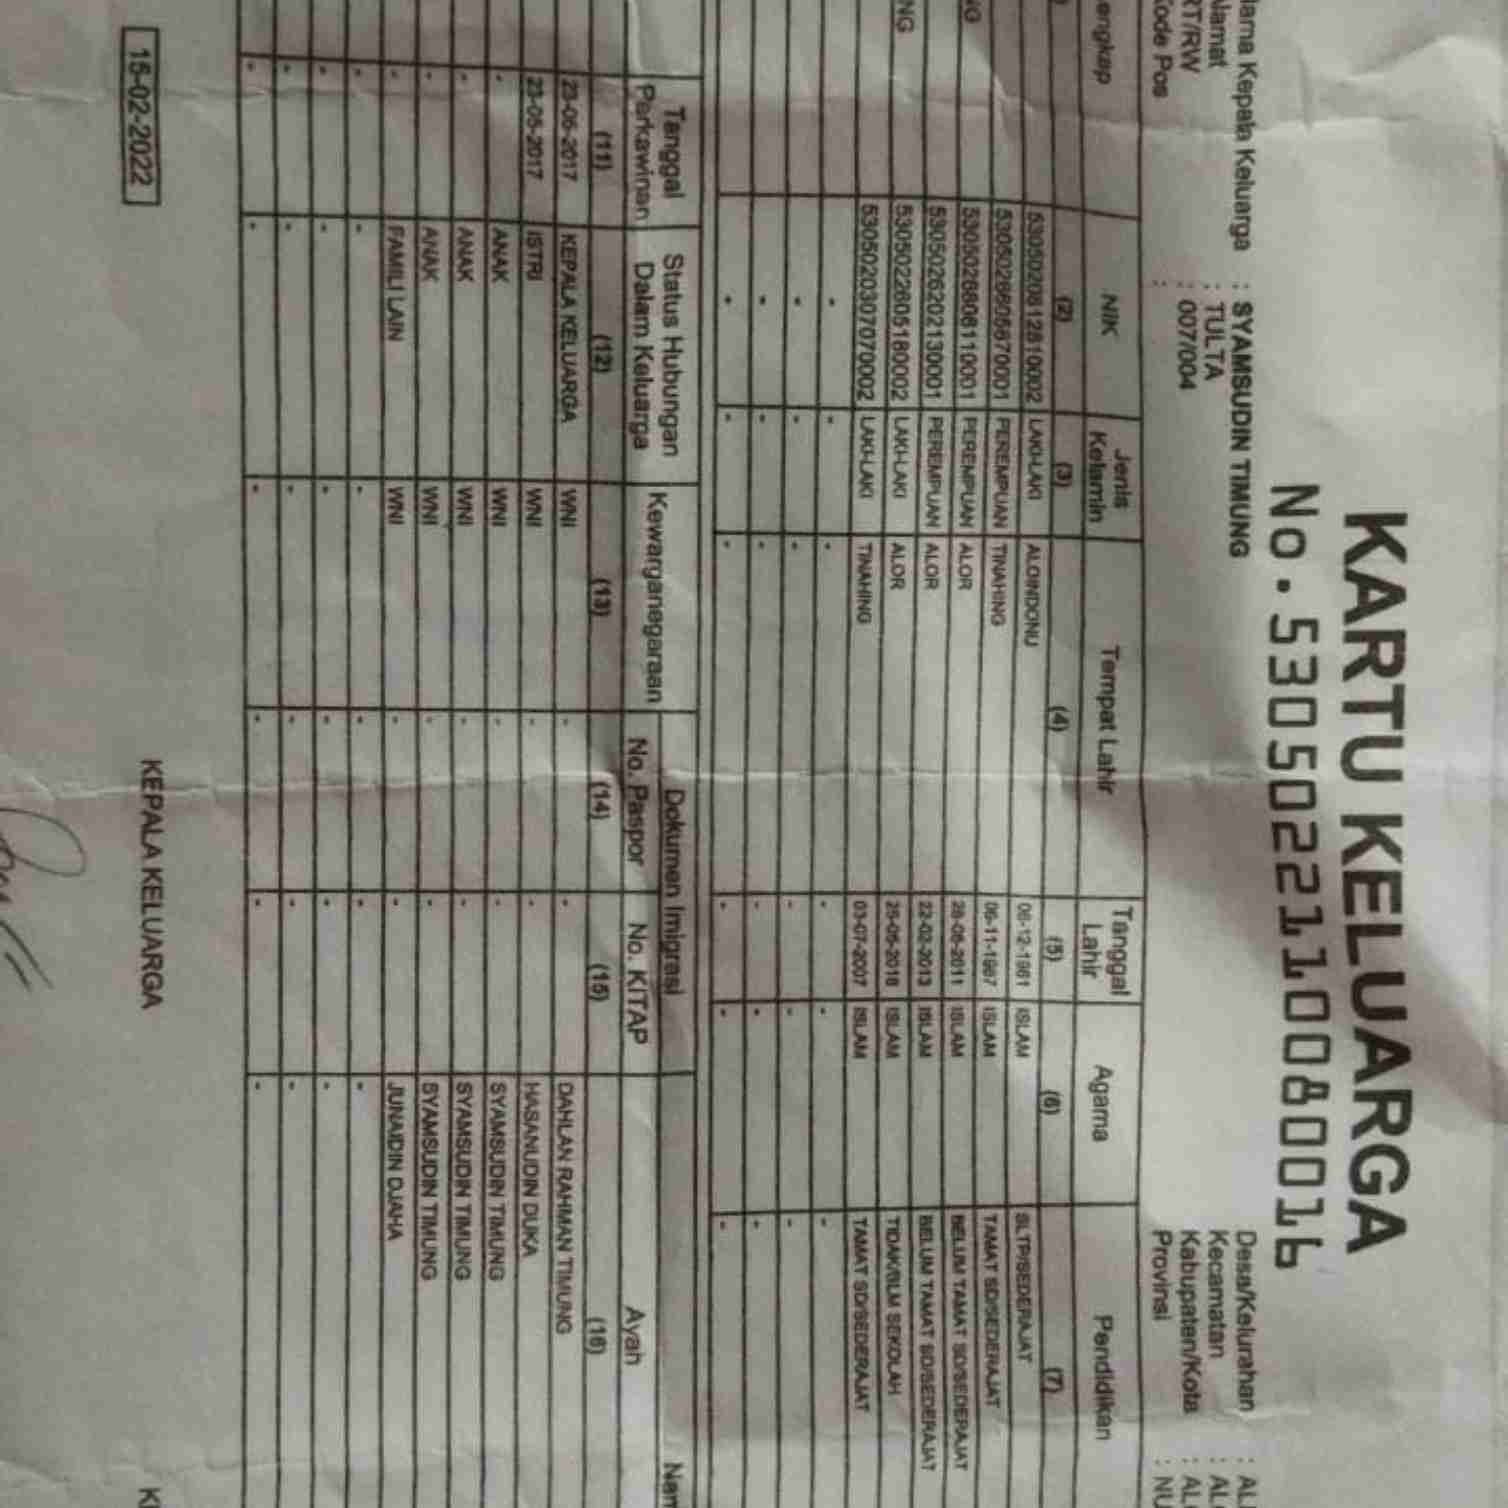 KARTU KELUARGA
No. 5305022110080016
Nama Kepala Keluarga : SYAMSUDIN TIMUNG
Alamat : TULTA
RT/RW : 007/004
Kode Pos :
Desa/Kelurahan :
Kecamatan :
Kabupaten/Kota :
Provinsi : NU
engkap NIK Jenis Kelamin Tempat Lahir Tanggal Lahir Agama Pendidikan
(2) (3) (4) (5) (6) (7)
LAKI-LAKI ALOINDONU ISLAM SLTP/SEDERAJAT
PEREMPUAN TINAHING ISLAM TAMAT SD/SEDERAJAT
PEREMPUAN ALOR ISLAM BELUM TAMAT SD/SEDERAJAT
5305026202130001 PEREMPUAN ALOR 22-02-2013 ISLAM BELUM TAMAT SD/SEDERAJAT
LAKI-LAKI ALOR ISLAM TIDAK/BLM SEKOLAH
5305020307070002 LAKI-LAKI TINAHING 03-07-2007 ISLAM TAMAT SD/SEDERAJAT
- - - - - -
- - - - - -
- - - - - -
- - - - - -
Tanggal Perkawinan Status Hubungan Dalam Keluarga Kewarganegaraan Dokumen Imigrasi
No. Paspor No. KITAP Ayah
(11) (12) (13) (14) (15) (16)
KEPALA KELUARGA WNI - - DAHLAN RAHMAN TIMUNG
ISTRI WNI - - HASANUDIN DUKA
- ANAK WNI - - SYAMSUDIN TIMUNG
- ANAK WNI - - SYAMSUDIN TIMUNG
- ANAK WNI - - SYAMSUDIN TIMUNG
- FAMILI LAIN WNI - - JUNAIDIN DJAHA
- - - - - -
- - - - - -
- - - - - -
- - - - - -
15-02-2022
KEPALA KELUARGA